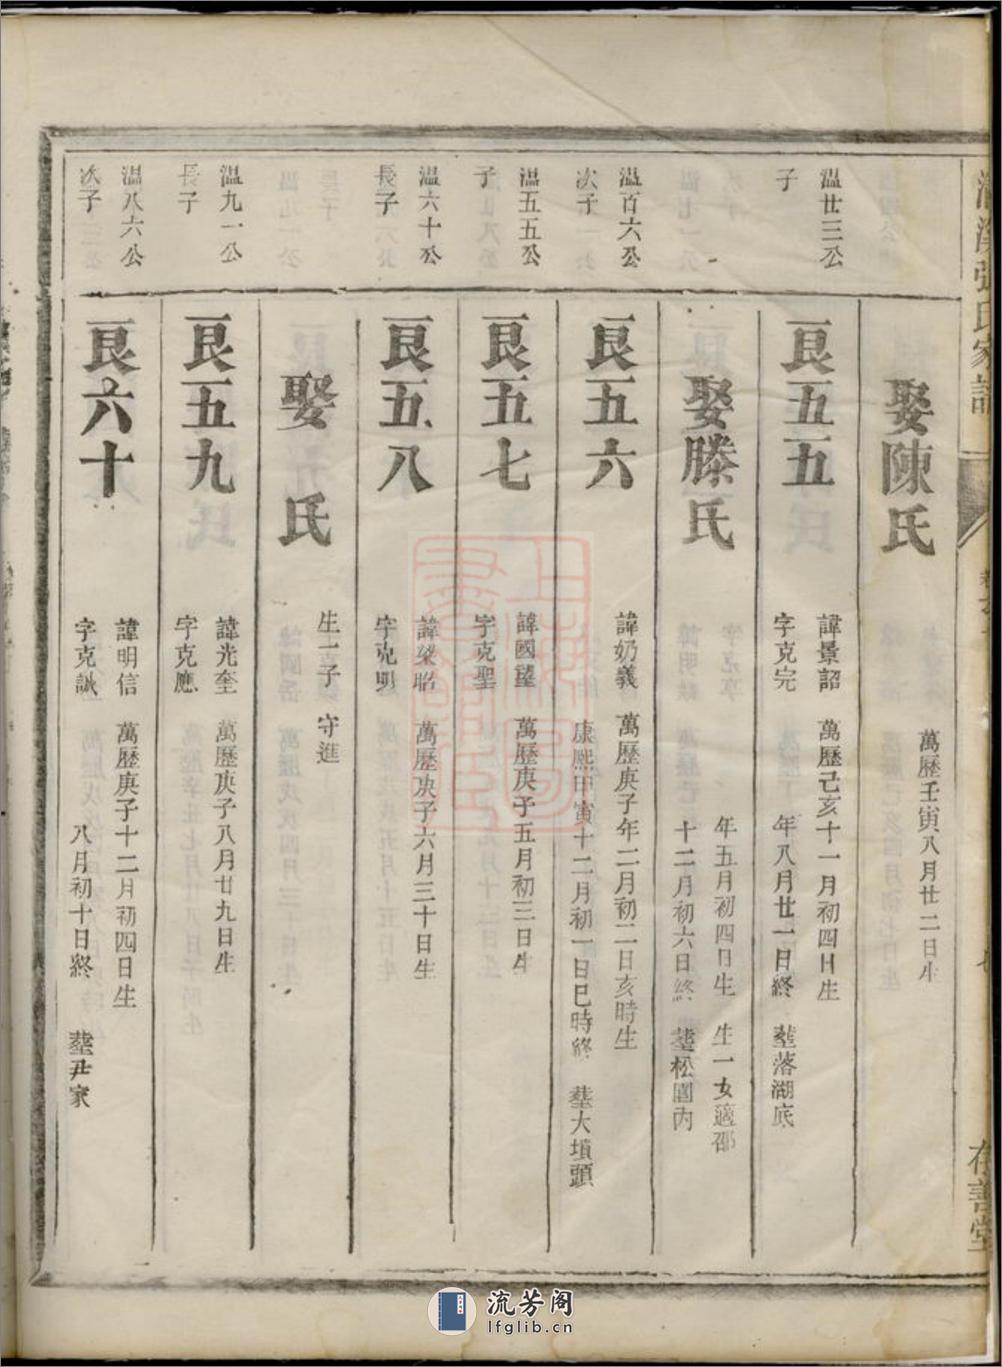 張氏家譜
存善堂
娶陳氏
萬歷壬寅八月廿二日生
溫廿三公
子
艮五五
諱景詔
字克完
萬歷己亥十一月初四日生
年八月廿一日終
塟落湖底
娶滕氏
年五月初四日生
十二月初六日終
生一女適邵
塟松園內
溫百六公
次子
艮五六
諱奶義
萬歷庚子年二月初二日亥時生
康熙甲寅十二月初一日巳時終
塟大墳頭
溫五五公
子
艮五七
諱國望
字克聖
萬歷庚子五月初三日生
溫六十公
長子
艮五八
諱梁昭
字克明
萬歷庚子六月三十日生
娶 氏
生一子 守進
溫九一公
長子
艮五九
諱光奎
字克應
萬歷庚子八月廿九日生
溫八六公
次子
艮六十
諱明信
字克誠
萬歷庚子十二月初四日生
八月初十日終
塟尹家
流芳阁
lfglib.cn